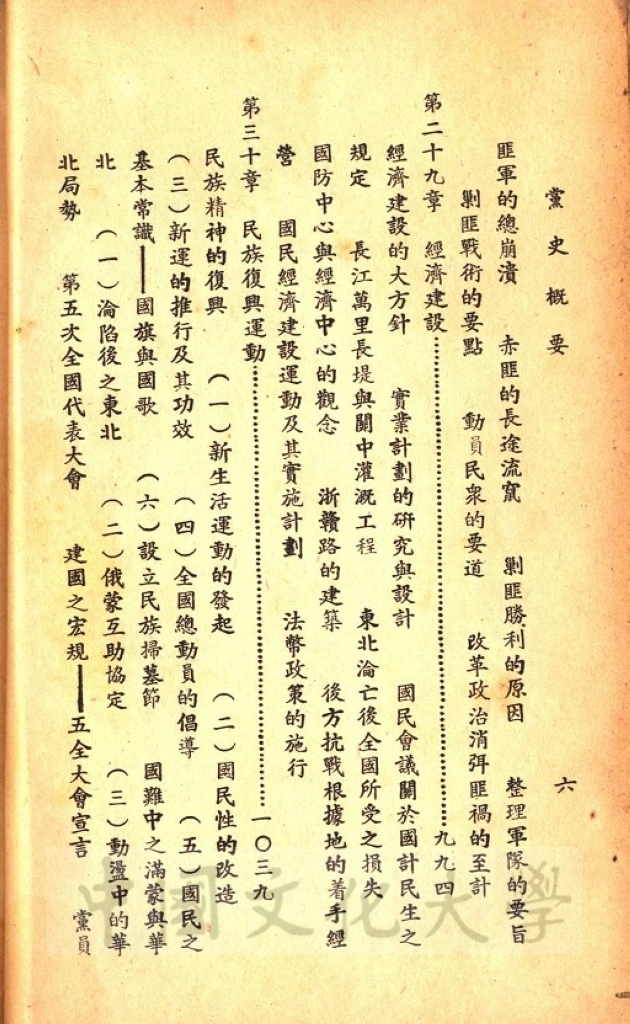 黨史概要
六
匪軍的總崩潰 赤匪的長途流竄 剿匪勝利的原因 整理軍隊的要旨
剿匪戰術的要點 動員民衆的要道 改革政治消弭匪禍的至計
第二十九章 經濟建設……九九四
經濟建設的大方針 實業計劃的研究與設計 國民會議關於國計民生之
規定 長江萬里長堤與關中灌溉工程 東北淪亡後全國所受之損失
國防中心與經濟中心的觀念 浙贛路的建築 後方抗戰根據地的着手經
營 國民經濟建設運動及其實施計劃 法幣政策的施行
第三十章 民族復興運動……一〇三九
民族精神的復興 (一)新生活運動的發起 (二)國民性的改造
(三)新運的推行及其功效 (四)全國總動員的倡導 (五)國民之
基本常識——國旗與國歌 (六)設立民族掃墓節 國難中之滿蒙與華
北 (一)淪陷後之東北 (二)俄蒙互助協定 (三)動盪中的華
北局勢 第五次全國代表大會 建國之宏規——五全大會宣言 黨員
中國文化大學